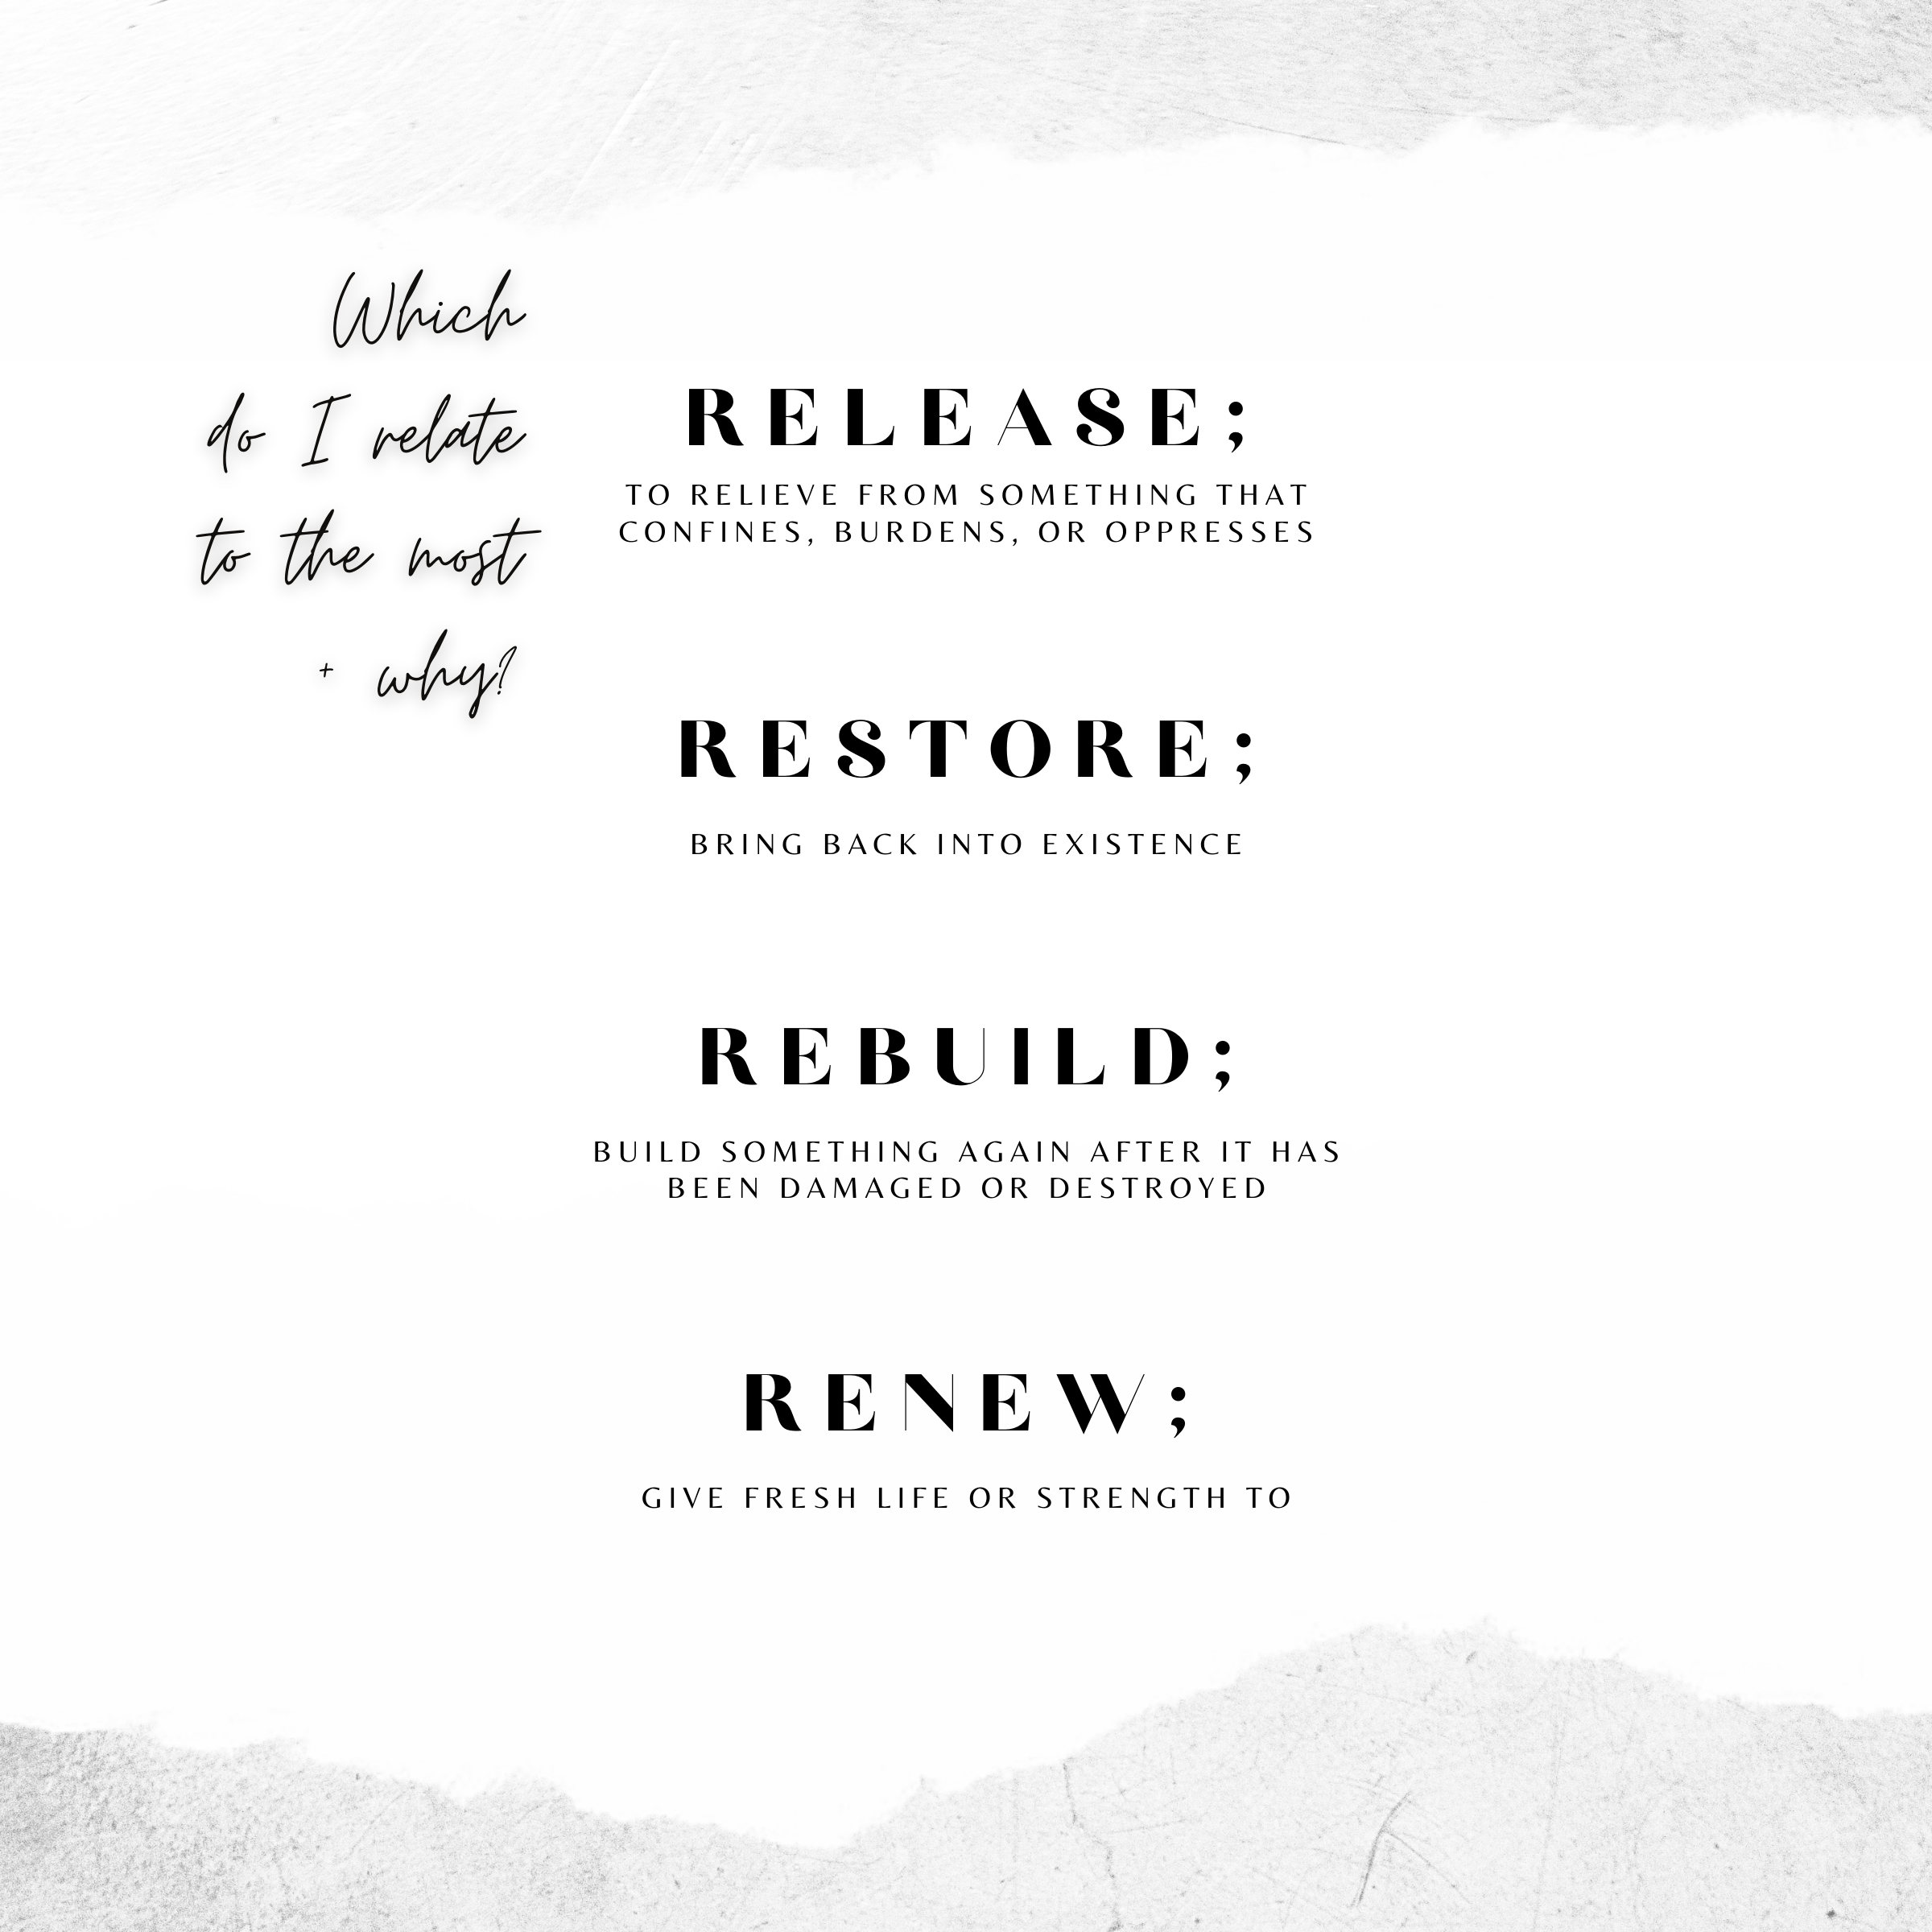 Which
do I relate
to the most
+ why?
RELEASE;
TO RELIEVE FROM SOMETHING THAT
CONFINES, BURDENS, OR OPPRESSES
RESTORE;
BRING BACK INTO EXISTENCE
REBUILD;
BUILD SOMETHING AGAIN AFTER IT HAS
BEEN DAMAGED OR DESTROYED
RENEW;
GIVE FRESH LIFE OR STRENGTH TO